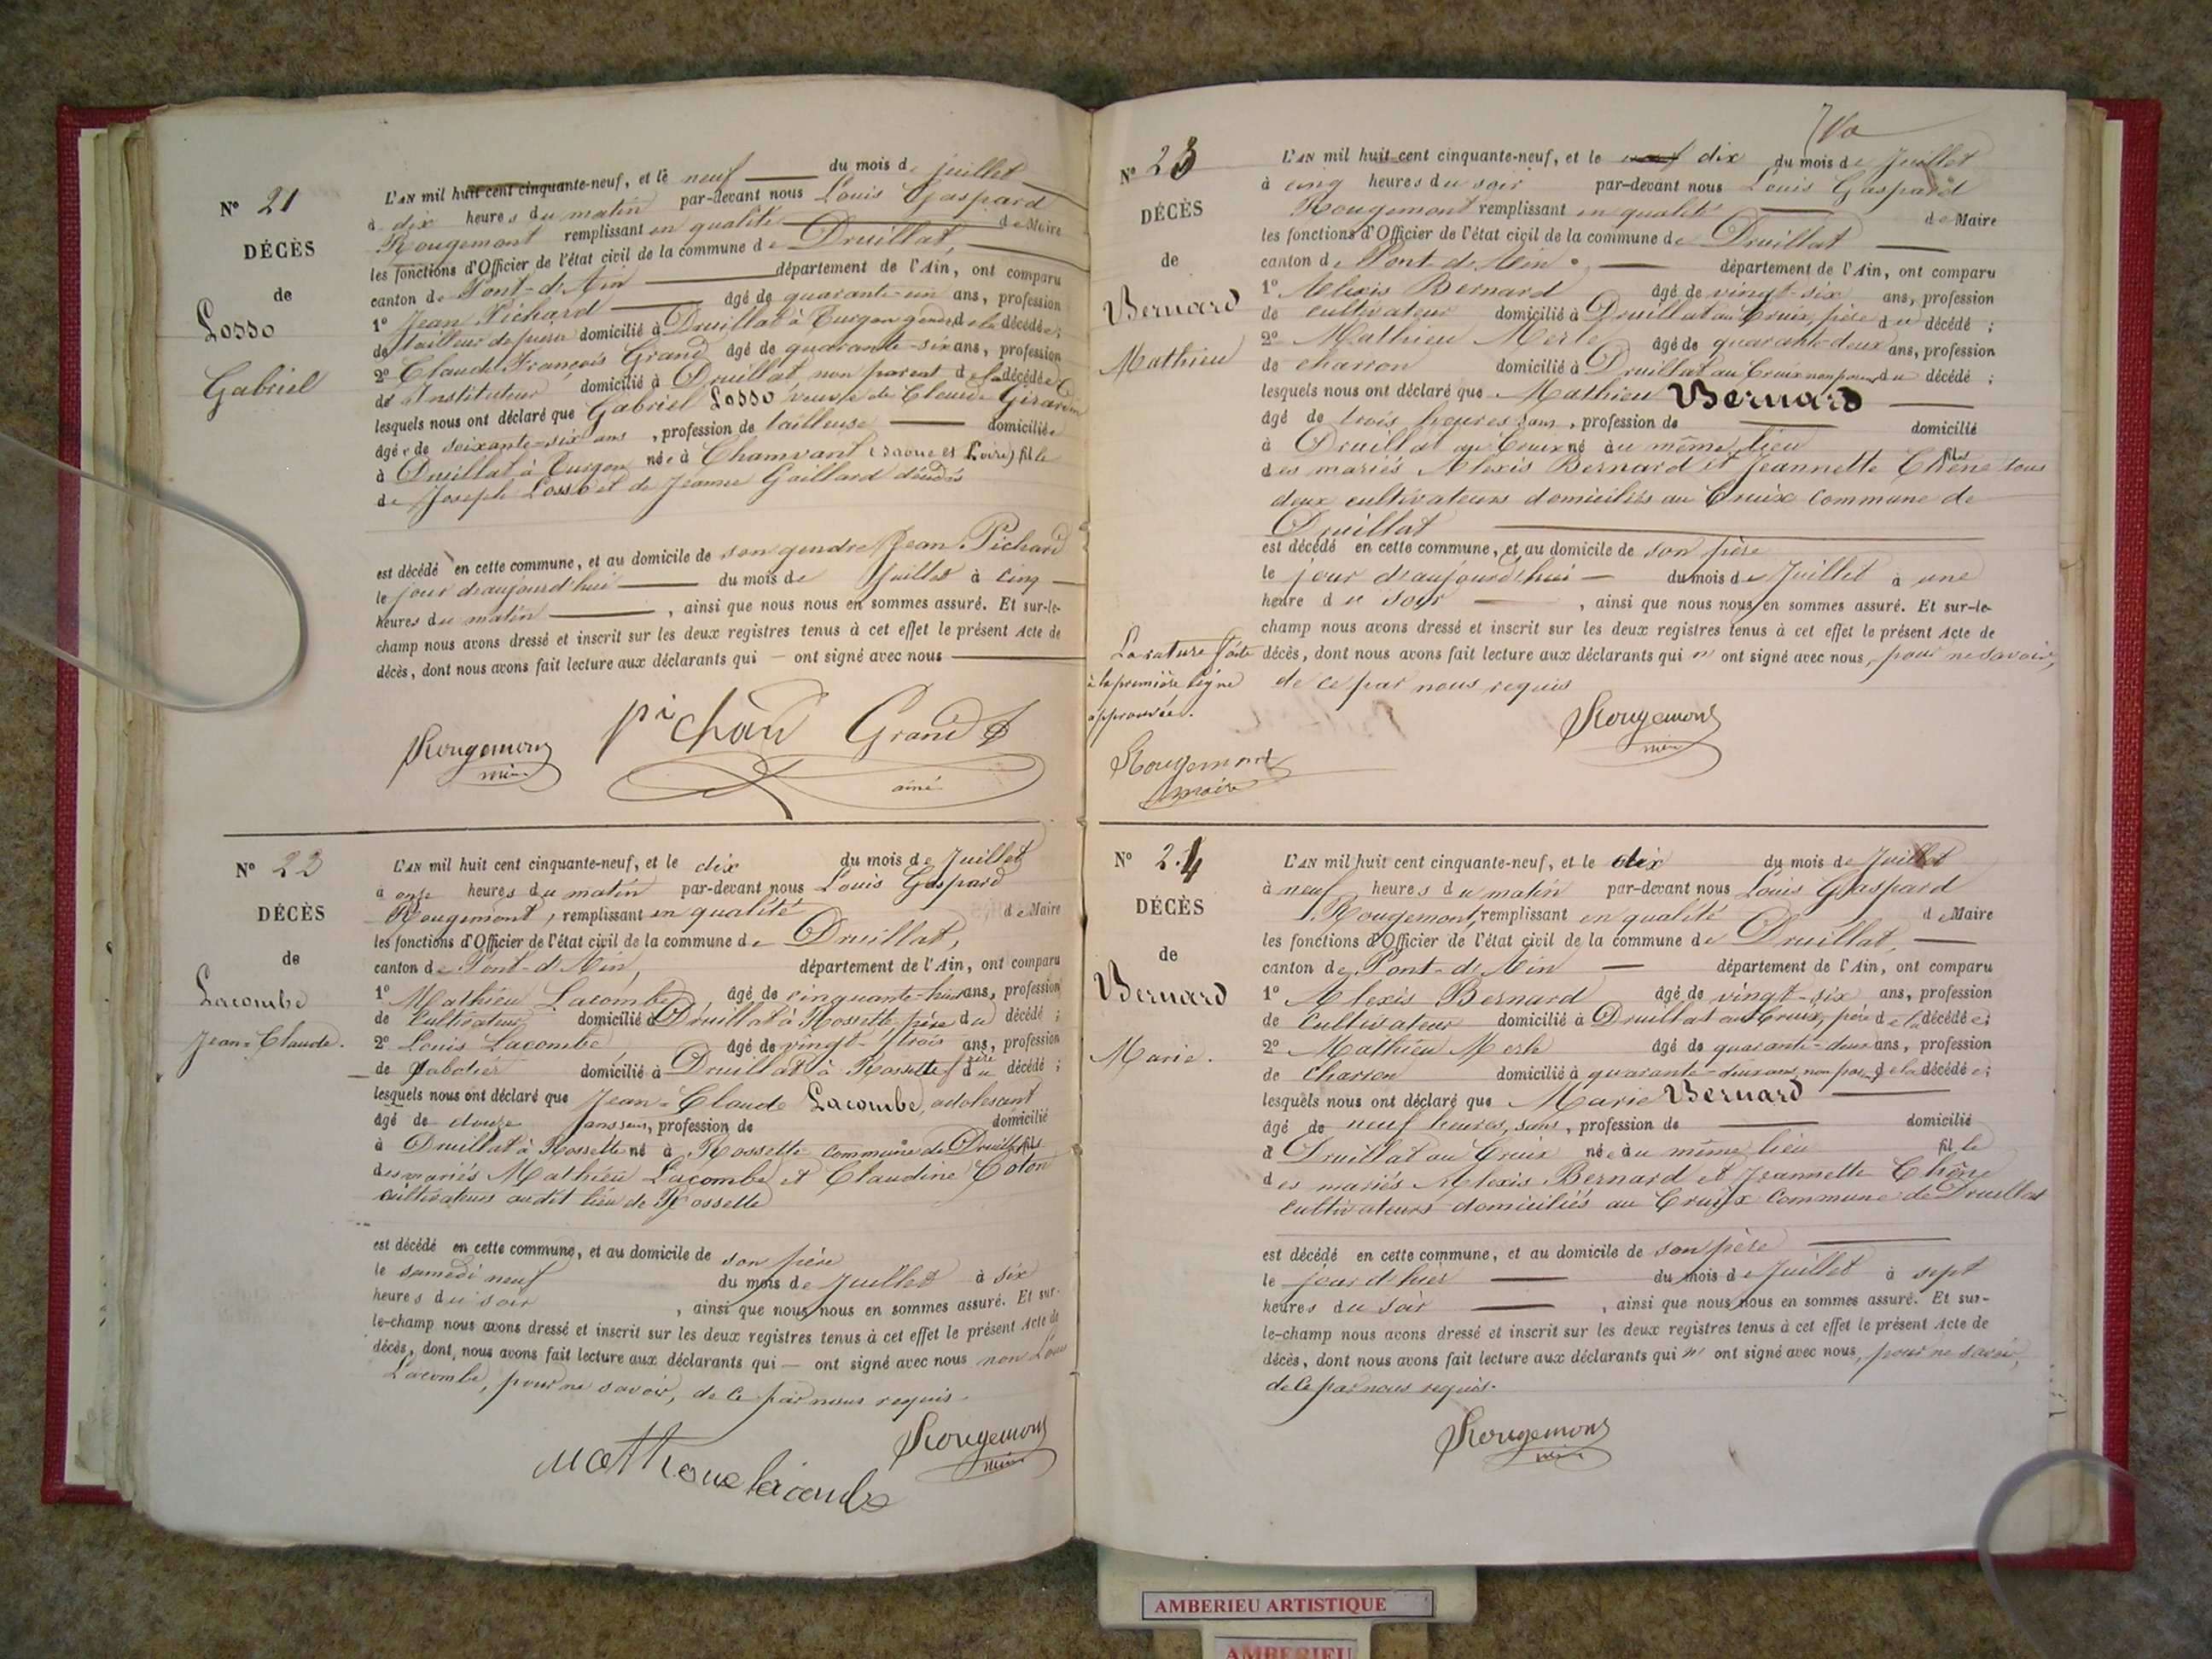 N° 21
DÉCÈS
de
Losso
Gabriel
L'AN mil huit cent cinquante-neuf, et le neuf du mois de juillet
à dix heures du matin par-devant nous Louis Gaspard
Rougemont remplissant en qualité de Maire
les fonctions d'Officier de l'état civil de la commune de Druillat,
canton de Pont-d'Ain département de l'Ain, ont comparu
1° Jean Pichard âgé de quarante-un ans, profession
de tailleur de pierre domicilié à Druillat à Turgon gendre de la décédée;
2° Claude François Grand âgé de quarante-six ans, profession
de Instituteur domicilié à Druillat, non parent de la décédée
lesquels nous ont déclaré que Gabriel Losso, veuve de Claude Girardin
âgée de soixante-six ans, profession de tailleuse domiciliée
à Druillat à Turgon née à Chamvant (Saône et Loire) fille
de Joseph Losso et de Jeanne Gaillard décédés
est décédé en cette commune, et au domicile de son gendre Jean Pichard
le jour d'aujourd'hui du mois de Juillet à cinq
heures du matin, ainsi que nous nous en sommes assuré. Et sur-le-
champ nous avons dressé et inscrit sur les deux registres tenus à cet effet le présent Acte de
décès, dont nous avons fait lecture aux déclarants qui — ont signé avec nous
Pichard Grand
Rougemont
maire
ainé
N° 22
DÉCÈS
de
Lacombe
Jean-Claude.
L'AN mil huit cent cinquante-neuf, et le dix du mois de Juillet
à onze heures du matin par-devant nous Louis Gaspard
Rougemont, remplissant en qualité de Maire
les fonctions d'Officier de l'état civil de la commune de Druillat,
canton de Pont-d'Ain, département de l'Ain, ont comparu
1° Mathieu Lacombe, âgé de cinquante-huit ans, profession
de Cultivateur domicilié à Druillat à Rossette, père du décédé;
2° Louis Lacombe, âgé de vingt-trois ans, profession
de sabotier domicilié à Druillat à Rossette frère du décédé;
lesquels nous ont déclaré que Jean-Claude Lacombe, adolescent
âgé de douze ans sans, profession de domicilié
à Druillat à Rossette né à Rossette commune de Druillat fils
des mariés Mathieu Lacombe et Claudine Coton
cultivateurs audit lieu de Rossette
est décédé en cette commune, et au domicile de son père
le samedi neuf du mois de Juillet à six
heures du soir, ainsi que nous nous en sommes assuré. Et sur-
le-champ nous avons dressé et inscrit sur les deux registres tenus à cet effet le présent Acte de
décès, dont nous avons fait lecture aux déclarants qui — ont signé avec nous non Louis
Lacombe, pour ne savoir, de ce par nous requis.
Rougemont
maire
N° 23
DÉCÈS
de
Bernard
Mathieu
L'AN mil huit cent cinquante-neuf, et le neuf dix du mois de Juillet
à cinq heures du soir par-devant nous Louis Gaspard
Rougemont remplissant en qualité de Maire
les fonctions d'Officier de l'état civil de la commune de Druillat
canton de Pont-d'Ain département de l'Ain, ont comparu
1° Alexis Bernard âgé de vingt-six ans, profession
de cultivateur domicilié à Druillat au Cruix, père du décédé;
2° Mathieu Merle âgé de quarante-deux ans, profession
de charron domicilié à Druillat au Cruix non parent du décédé;
lesquels nous ont déclaré que Mathieu Bernard
âgé de trois heures, sans, profession de domicilié
à Druillat au Cruix né au même lieu fils
des mariés Alexis Bernard et Jeannette Chêne tous
deux cultivateurs domiciliés au Cruix commune de
Druillat
est décédé en cette commune, et au domicile de son père
le jour d'aujourd'hui du mois de Juillet à une
heure du soir, ainsi que nous nous en sommes assuré. Et sur-le-
champ nous avons dressé et inscrit sur les deux registres tenus à cet effet le présent Acte de
décès, dont nous avons fait lecture aux déclarants qui n' ont signé avec nous, pour ne savoir,
de ce par nous requis
La rature faite
à la première ligne
approuvée.
Rougemont
maire
Rougemont
maire
N° 24
DÉCÈS
de
Bernard
Marie.
L'AN mil huit cent cinquante-neuf, et le dix du mois de Juillet
à neuf heures du matin par-devant nous Louis Gaspard
Rougemont, remplissant en qualité de Maire
les fonctions d'Officier de l'état civil de la commune de Druillat,
canton de Pont-d'Ain département de l'Ain, ont comparu
1° Alexis Bernard âgé de vingt-six ans, profession
de Cultivateur domicilié à Druillat au Cruix, père de la décédée;
2° Mathieu Merle âgé de quarante-deux ans, profession
de Charron domicilié à quarante-deux ans, non par. de la décédée;
lesquels nous ont déclaré que Marie Bernard
âgé de neuf heures, sans, profession de domicilié
à Druillat au Cruix née au même lieu fille
des mariés Alexis Bernard et Jeannette Chêne
cultivateurs domiciliés au Cruix Commune de Druillat
est décédé en cette commune, et au domicile de son père
le jour d'hier du mois de Juillet à sept
heures du soir, ainsi que nous nous en sommes assuré. Et sur-
le-champ nous avons dressé et inscrit sur les deux registres tenus à cet effet le présent Acte de
décès, dont nous avons fait lecture aux déclarants qui n' ont signé avec nous, pour ne savoir,
de ce par nous requis.
Rougemont
maire
AMBERIEU ARTISTIQUE
AMBERIEU